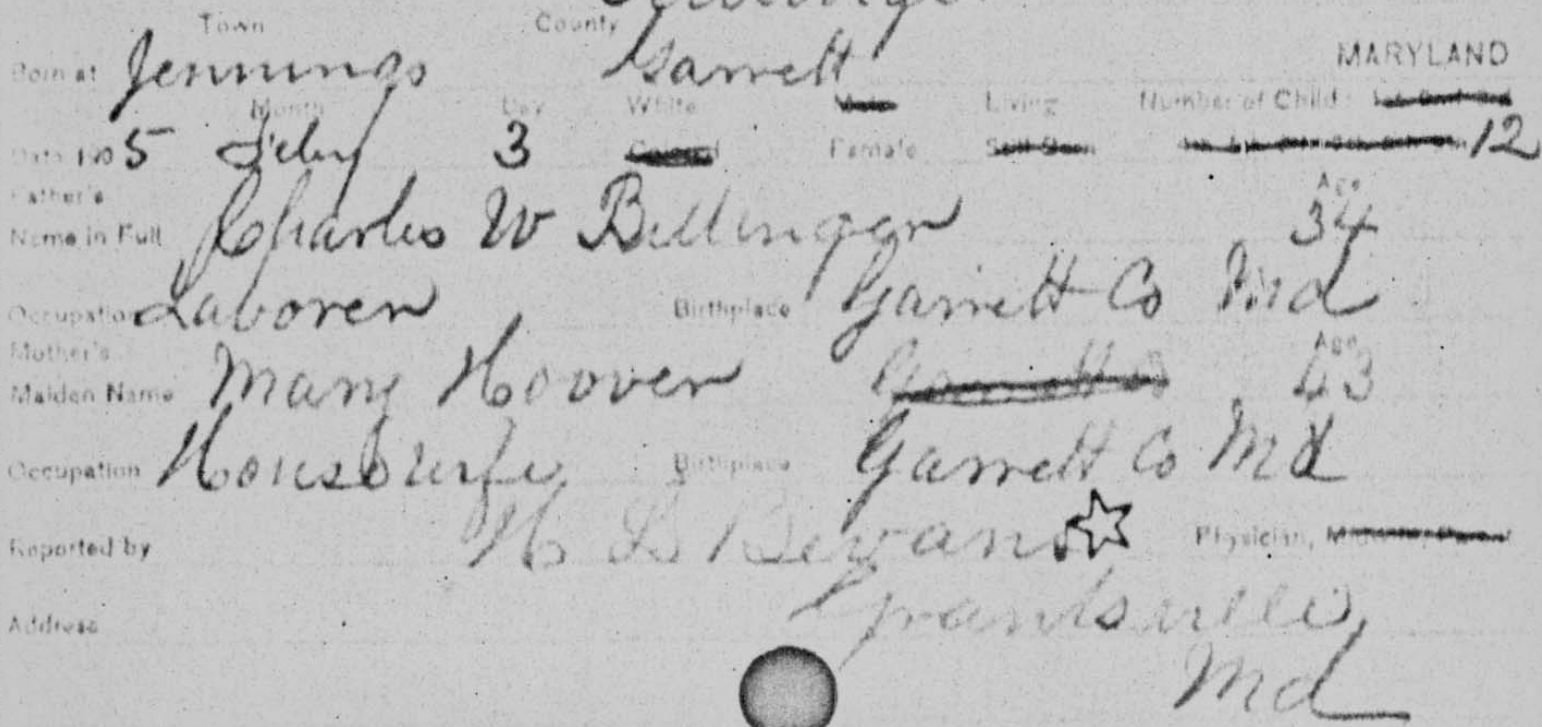 Town County
Born at Jennings Garrett MARYLAND
Month Day White Male Living Number of Child: 1st 2nd 3rd
Date 1905 Feby 3 Colored Female Still Born 12
Father's Age
Name in Full Charles W Billinger 34
Occupation Laborer Birthplace Garrett Co Md
Mother's Age
Maiden Name Mary Hoover Garrett Co 43
Occupation Housewife Birthplace Garrett Co Md
Reported by H L Bevans Physician, Midwife, Parent
Address Grantsville
Md